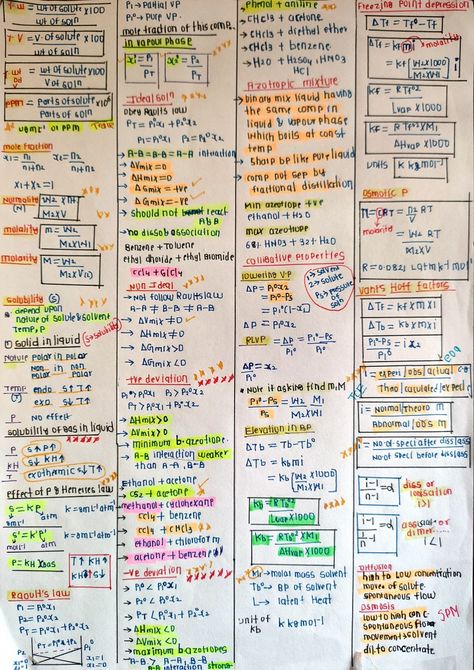 T W/W = wt of solute x100
wt of soln
T V/V = V of solute x100
V of soln
T wt/V = wt of solute x100
V of soln
ppm = parts of solute x10⁶
Parts of soln
mole fraction
x1 = n1/n1+n2
x2 = n2/n1+n2
x1+x2=1
Normality(N)
molarity
M = W2 x n
M2XV
molality
m = W2
M2XW1
solubility (S)
depend upon
nature of solute & solvent
Temp, P
① solid in liquid
Nature polar in polar
non in non
polar polar
Temp endo S↑T↑
exo. S↓T↑
P No effect
solubility of gas in liquid
P S↑P↑
KH S↓KH↑
T exothermic S↓T↑
effect of P & Henry's law
P = KH X gas
T↑KH↑
KH↑S↓
Raoult's law
P1 = P1⁰x1
P2 = P2⁰x2
PT = P1⁰x1 + P2⁰x2
P → Partial VP
P⁰ → Pure VP
mole fraction of this comp.
in vapour phase
x1' = P1/PT
x2' = P2/PT
Ideal soln
obey Raults law
PT = P1⁰x1 + P2⁰x2
P1 = P1⁰x1 P2 = P2⁰x2
A-B = B-B = A-A interaction
ΔVmix = 0
ΔHmix = 0
ΔSmix = +ve
ΔGmix = -ve
should not react
A&B
no dissob association
Benzene + Toluene
ethyl chloride + ethyl Bromide
Non Ideal
not follow Raults law
A-B ≠ B-B ≠ A-A
ΔVmix ≠ 0
ΔHmix ≠ 0
ΔSmix > 0
ΔGmix < 0
+ve deviation
P1 > P1⁰x1 P2 > P2⁰x2
PT > P1⁰x1 + P2⁰x2
ΔHmix > 0
ΔVmix > 0
minimum b-azeotrope
A-B interaction weaker
than A-A, B-B
ethanol + acetone
CS2 + acetone
methanol + cyclohexane
CCl4 + benzene
CCl4 + CHCl3
ethanol + chloroform
acetone + benzene
-ve deviation
P1⁰ < P1⁰x1
P2 < P2⁰x2
PT < P1⁰x1 + P2⁰x2
ΔHmix < 0
ΔVmix < 0
maximum b-azeotrope
A-B > A-A, B-B
A-B interaction
phenol + aniline
CHCl3 + acetone
CHCl3 + diethyl ether
CHCl3 + benzene
H2O + H2SO4, HNO3
HCl
Azotropic mixture
binary mix liquid having
the same comp in
liquid & vapour phase
which boils at const
temp
sharp bp like pure liquid
comp not sep by
fractional distillation
Min azeotrope +ve
ethanol + H2O
max azeotrope
68% HNO3 + 32% H2O
colligative properties
lowering VP
1 → solvent
2 → solute
Ps → pressure
of soln
ΔP = P1⁰x2
P1⁰-Ps
= P1⁰(1-x1)
ΔP = P1⁰x2
RLVP = ΔP/P1⁰ = P1⁰-Ps/P1⁰
ΔP/P1⁰ = x2
Note if asking find m, M
P1⁰-Ps/Ps = W2/M2 X M1/W1
Elevation in BP
ΔTb = Tb-Tb⁰
ΔTb = kb mi
= kb [W2 X 1000/M2XW1]
kb = RTb⁰²
Lvap X 1000
kb = RTb²XM1
ΔHvap X 1000
M1 → molar mass solvent
Tb⁰ → BP of solvent
L → latent Heat
unit of
kb
K kg mol⁻¹
Freezing Point depression
ΔTf = Tf⁰-Tf
ΔTf = kf m → molality
= kf [W2X1000/M2XW1]
kf = RTf⁰²
Lvap X 1000
kf = RTf⁰²XM1
ΔHvap X 1000
units K kg mol⁻¹
Osmotic P
π = CRT = n2/V RT
molarity = W2 RT
M2XV
Vants Hoff factors
ΔTf = kf x m x i
ΔTb = kb x m x i
P1⁰-Ps/P1⁰ = i x2
i = normal/theoro m
Abnormal/obs m
= No. of speci after diss/ass
No of speci before diss/ass
i-1/n-1 = α
diss or
ionisation
i>1
i-1/1/n -1 = α
asso or
dimer
i<1
Diffusion
high to low concentration
move of solute
spontaneous flow
Osmosis
low to high conc
spontaneous flow
movement solvent
dil to concentrate
SPM